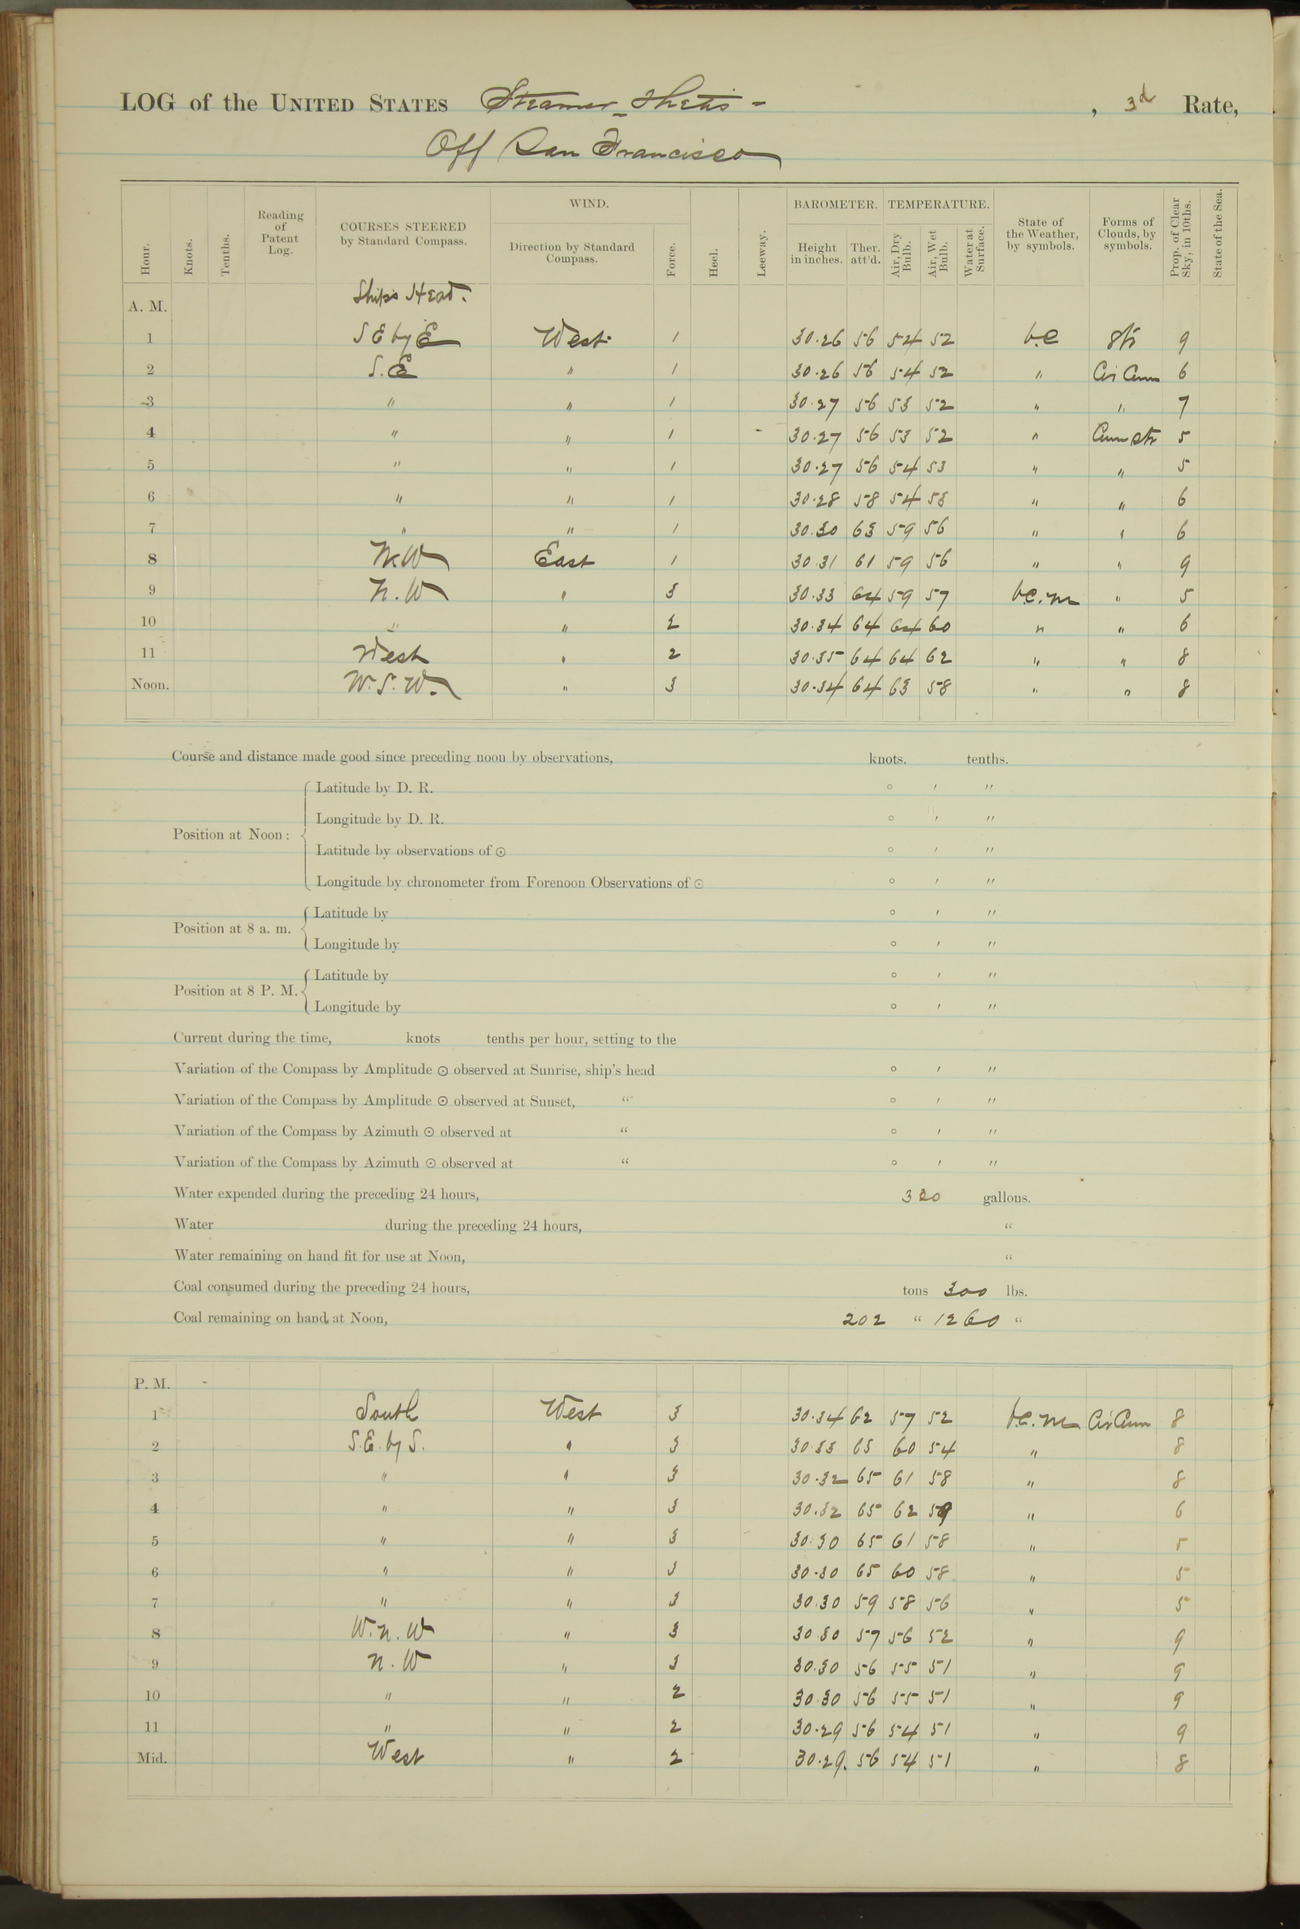 LOG of the UNITED STATES Steamer Thetis - , 3d Rate,
Off San Francisco
Hour. Knots. Tenths. Reading of Patent Log. COURSES STEERED by Standard Compass. WIND. Direction by Standard Compass. Force. Heel. Leeway. BAROMETER. Height in inches. Ther. att'd. TEMPERATURE. Air, Dry Bulb. Air, Wet Bulb. Water at Surface. State of the Weather, by symbols. Forms of Clouds, by symbols. Prop. of Clear Sky, in 10ths. State of the Sea.
A. M. Ship's Head.
1 S E by E West 1 30.26 56 54 52 b.c Str 9
2 S.E " 1 30.26 56 54 52 " Cir Cum 6
3 " " 1 30.27 56 53 52 " " 7
4 " " 1 30.27 56 53 52 " Cum Str 5
5 " " 1 30.27 56 54 53 " " 5
6 " " 1 30.28 58 54 53 " " 6
7 " " 1 30.30 63 59 56 " " 6
8 N.W East 1 30.31 61 59 56 " " 9
9 N.W " 3 30.33 64 59 57 b.c.m " 5
10 " " 2 30.34 64 64 60 " " 6
11 West " 2 30.35 64 64 62 " " 8
Noon. W.S.W. " 3 30.34 64 63 58 " " 8
Course and distance made good since preceding noon by observations, knots. tenths.
Position at Noon: Latitude by D. R. ° ′ ″
Longitude by D. R. ° ′ ″
Latitude by observations of ⊙ ° ′ ″
Longitude by chronometer from Forenoon Observations of ⊙ ° ′ ″
Position at 8 a. m. Latitude by ° ′ ″
Longitude by ° ′ ″
Position at 8 P. M. Latitude by ° ′ ″
Longitude by ° ′ ″
Current during the time, knots tenths per hour, setting to the
Variation of the Compass by Amplitude ⊙ observed at Sunrise, ship's head ° ′ ″
Variation of the Compass by Amplitude ⊙ observed at Sunset, " ° ′ ″
Variation of the Compass by Azimuth ⊙ observed at " ° ′ ″
Variation of the Compass by Azimuth ⊙ observed at " ° ′ ″
Water expended during the preceding 24 hours, 320 gallons.
Water during the preceding 24 hours, "
Water remaining on hand fit for use at Noon, "
Coal consumed during the preceding 24 hours, tons 300 lbs.
Coal remaining on hand at Noon, 202 " 1260 "
P. M.
1 South West 3 30.34 62 57 52 b.c.m Cir Cum 8
2 S.E. by S. " 3 30.33 65 60 54 " 8
3 " " 3 30.32 65 61 58 " 8
4 " " 3 30.32 65 62 59 " 6
5 " " 3 30.30 65 61 58 " 5
6 " " 3 30.30 65 60 58 " 5
7 " " 3 30.30 59 58 56 " 5
8 W.N.W " 3 30.30 57 56 52 " 9
9 N.W " 3 30.30 56 55 51 " 9
10 " " 2 30.30 56 55 51 " 9
11 " " 2 30.29 56 54 51 " 9
Mid. West " 2 30.29. 56 54 51 " 8